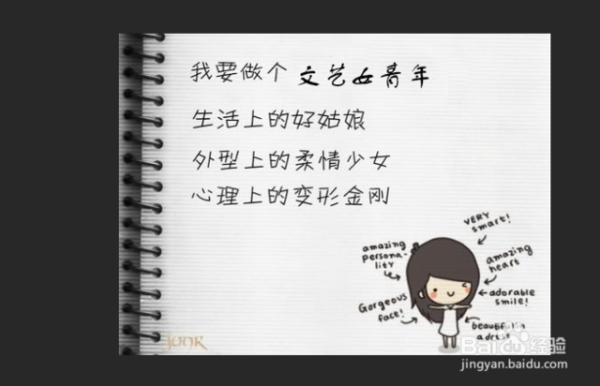 我要做个 文艺女青年
生活上的好姑娘
外型上的柔情少女
心理上的变形金刚
VERY smart!
amazing persona-lity
amazing heart
adorable smile!
Gorgeous face!
Baidu经验
jingyan.baidu.com